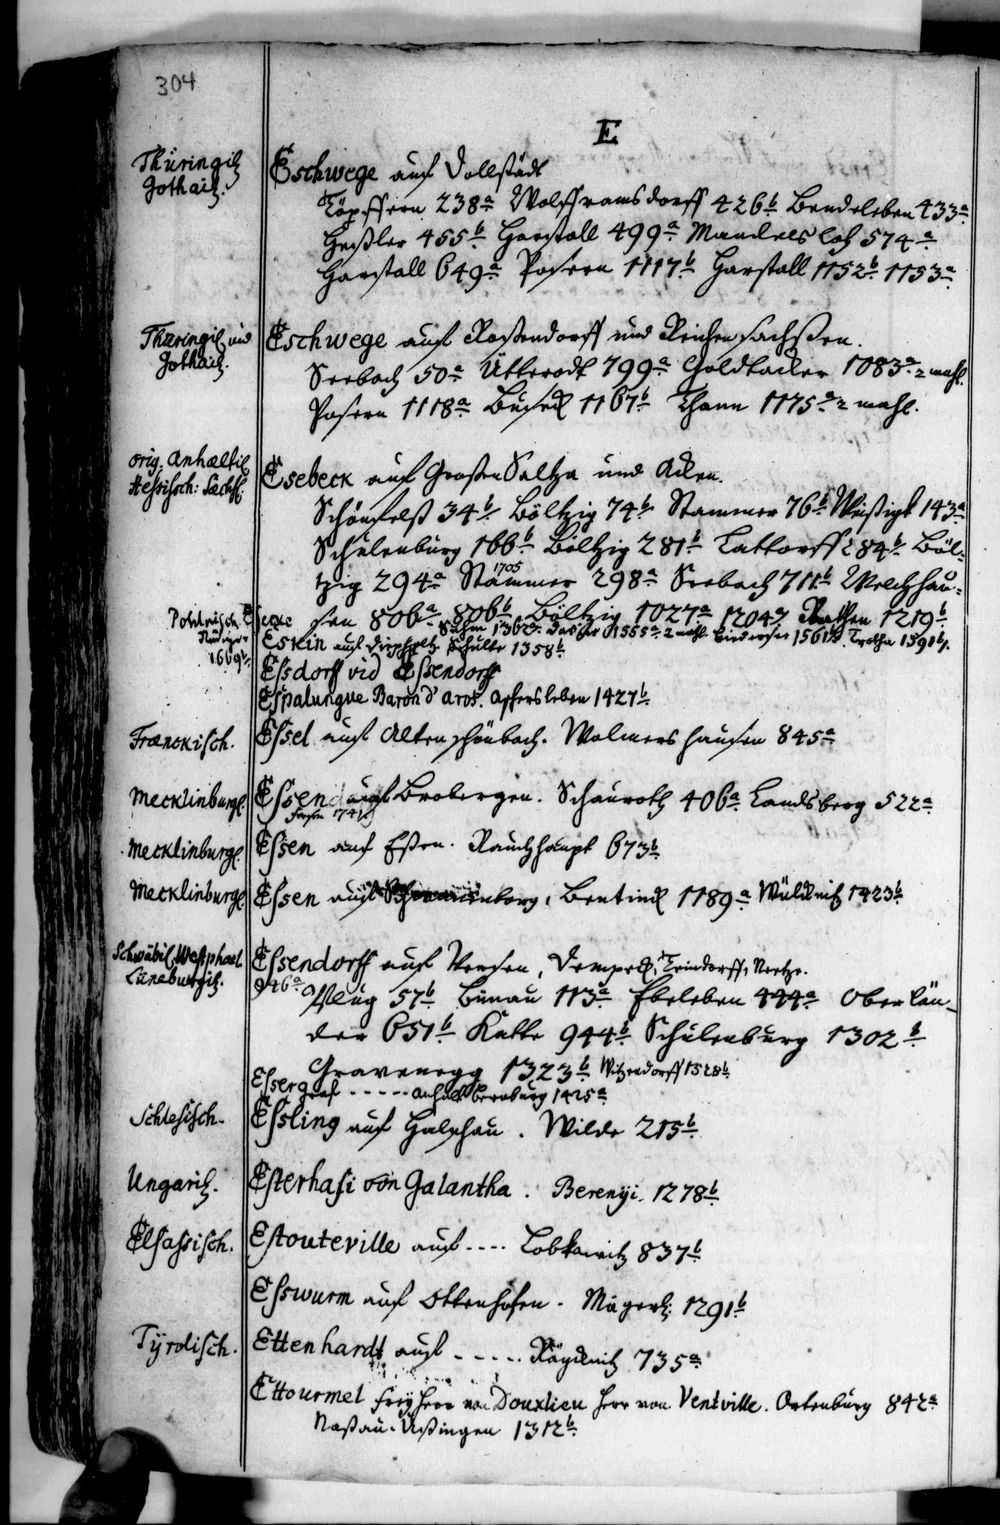 304
E
Thüringisch Gothaisch.
Eschwege auf Vollstädt
Töpffern 238a Wolfframsdorff 426b Bendeleben 433a
Geißler 455b Harstall 499a Mandelsloh 574a
Harstall 649a Posern 1117b Harstall 1152b 1153a
Thüringisch und Gothaisch.
Eschwege auf Roßendorff und Reichensachßen.
Seebach 50a Ütterodt 799a Goldtacker 1083a 2 mahl.
Posern 1118a Buseck 1167b Thann 1175a 2 mahl.
orig. Anhaltisch Hessisch: Sächß:
Esebeck auf Großen Saltza und Acken.
Schönfelß 34b Böltzig 74b Stammer 76b Weißigk 143a
Schulenburg 166b Böltzig 281b Lattorff 284b Böl-
tzig 294a Stammer 1705 298a Seebach 711b Welchhau-
sen 806a 806b Böltzig 1027a 1204a Rathen 1219b
1362 1555a 2 mahl. 1561b Trotha 1591b
Eskin auf Schulte 1358b
1669b
Essdorff vid Essendorff
Espalungue Baron d'Aros. Aschersleben 1427b
Fränckisch.
Essel auf Altenschönbach. Wolmershausen 845a
Mecklinburg.
Essen auf Brobergen. Schauroth 406a Landsberg 522a
1741
Mecklinburg.
Essen auf Essen. Rauchhaupt 673b
Mecklinburg.
Essen auf Bentinck 1189a Wülcknitz 1423b
Schwäbisch Westphael. Lüneburgisch.
Essendorff auf Versen,
946a Pflug 57b Bünau 113a Ebeleben 444a Oberlän-
der 651b Katte 944b Schulenburg 1302b
Gravenegg 1323b Witzendorff 1528b
Esser Graf - - - - - Anhalt Bernburg 1425a
Schlesisch.
Essling auf Halschau. Wilde 215b
Ungarisch.
Esterhasi von Galantha. Berenyi 1278b
Elsassisch.
Estouteville auf - - - - Lobkowitz 837b
Esswurm auf Ottenhofen. Mägerl: 1291b
Tyrolisch.
Ettenhardt auf - - - - - Räydnitz 735a
Ettourmel Freyherr von Douxlieu Herr von Ventville. Ortenburg 842a
Naßau-Usingen 1312b